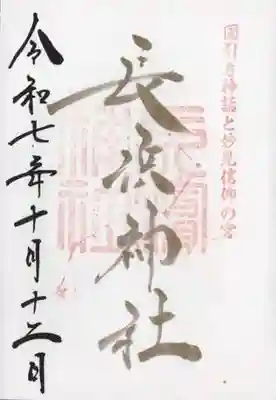 國引き神話と妙見信仰の宮
長浜神社
令和七年十月十二日